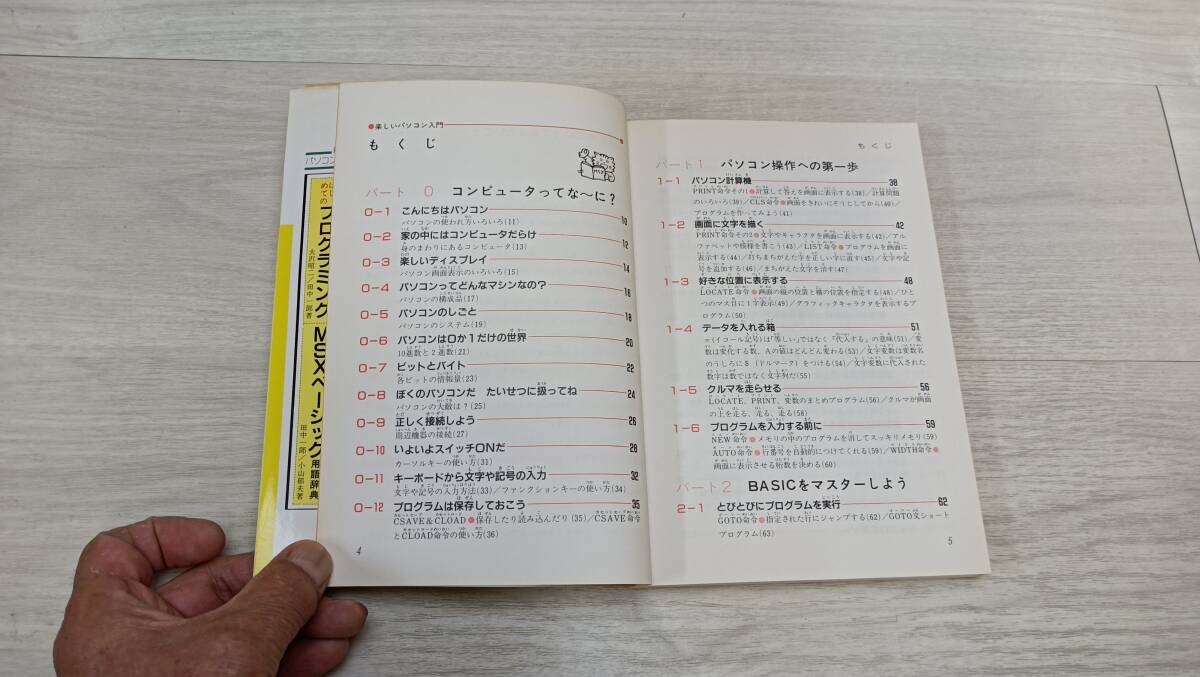 パソコン
はじめての
プログラミング
大沢昭二/田中一郎著
MSXベーシック
用語辞典
田中一郎/小山郁夫著
●楽しいパソコン入門
もくじ
パート 0 コンピュータってな〜に?
0-1 こんにちはパソコン 10
パソコンの使われ方いろいろ(11)
0-2 家の中にはコンピュータだらけ 12
身のまわりにあるコンピュータ(13)
0-3 楽しいディスプレイ 14
パソコン画面表示のいろいろ(15)
0-4 パソコンってどんなマシンなの? 16
パソコンの構成品(17)
0-5 パソコンのしごと 18
パソコンのシステム(19)
0-6 パソコンは0か1だけの世界 20
10進数と2進数(21)
0-7 ビットとバイト 22
各ビットの情報量(23)
0-8 ぼくのパソコンだ たいせつに扱ってね 24
パソコンの大敵は?(25)
0-9 正しく接続しよう 26
周辺機器の接続(27)
0-10 いよいよスイッチONだ 28
カーソルキーの使い方(31)
0-11 キーボードから文字や記号の入力 32
文字や記号の入力方法(33)/ファンクションキーの使い方(34)
0-12 プログラムは保存しておこう 35
CSAVE&CLOAD●保存したり読み込んだり(35)/CSAVE命令
とCLOAD命令の使い方(36)
4
もくじ
パート1 パソコン操作への第一歩
1-1 パソコン計算機 38
PRINT命令その1●計算して答えを画面に表示する(38)/計算問題
のいろいろ(39)/CLS命令●画面をきれいにそうじしてから(40)/
プログラムを作ってみよう(41)
1-2 画面に文字を描く 42
PRINT命令その2●文字やキャラクタを画面に表示する(42)/アル
ファベットや模様を書こう(43)/LIST命令●プログラムを画面に
表示する(44)/打ちまちがえた字を正しい字に直す(45)/文字や記
号を追加する(46)/まちがえた文字を消す(47)
1-3 好きな位置に表示する 48
LOCATE命令●画面の縦の位置と横の位置を指定する(48)/ひと
つのマス目に1字表示(49)/グラフィックキャラクタを表示するプ
ログラム(50)
1-4 データを入れる箱 51
=(イコール記号)は「等しい」ではなく「代入する」の意味(51)/変
数は変化する数、Aの値はどんどん変わる(53)/文字変数は変数名
のうしろに$(ドルマーク)をつける(54)/文字変数に代入された
数字は数ではなくて文字列だ(55)
1-5 クルマを走らせる 56
LOCATE、PRINT、変数のまとめプログラム(56)/クルマが画面
の上を走る、走る、走る(58)
1-6 プログラムを入力する前に 59
NEW命令●メモリの中のプログラムを消してスッキリメモリ(59)/
AUTO命令●行番号を自動的につけてくれる(59)/WIDTH命令●
画面に表示させる桁数を決める(60)
パート2 BASICをマスターしよう
2-1 とびとびにプログラムを実行 62
GOTO命令●指定された行にジャンプする(62)/GOTO文ショート
プログラム(63)
5